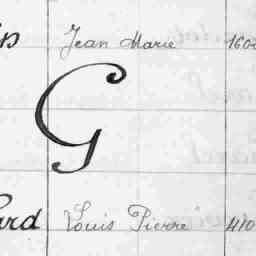 Jean Marie
G
ard Louis Pierre 410